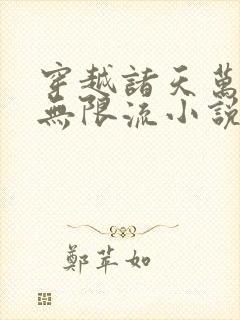 穿越諸天萬
無限流小說
鄭苹如